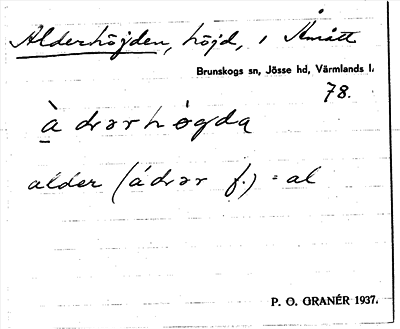 Alderhöjden, höjd, i Åmått
Brunskogs sn, Jösse hd, Värmlands l.
78.
à drərhøgda
alder (ádrər f.) = al
P. O. GRANÉR 1937.